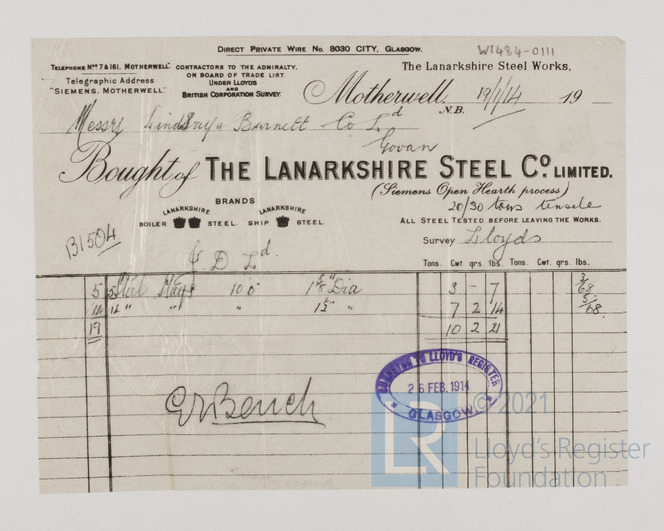 DIRECT PRIVATE WIRE No. 8030 CITY, GLASGOW.
W1484-0111
TELEPHONE Nos 7 & 161, MOTHERWELL.
Telegraphic Address
"SIEMENS, MOTHERWELL"
CONTRACTORS TO THE ADMIRALTY,
ON BOARD OF TRADE LIST.
UNDER LLOYDS
AND
BRITISH CORPORATION SURVEY.
The Lanarkshire Steel Works,
Motherwell, 19/1/14 19
N.B.
Messrs Lindsay & Burnett Co Ld
Govan
Bought of THE LANARKSHIRE STEEL Co. LIMITED.
(Siemens Open Hearth process)
20/30 tons tensile
BRANDS
LANARKSHIRE
BOILER STEEL.
LANARKSHIRE
SHIP STEEL.
ALL STEEL TESTED BEFORE LEAVING THE WORKS.
Survey Lloyds
B1504
D Ld.
Tons. Cwt. qrs. lbs. Tons. Cwt. qrs. lbs.
5 5 Dia 3 - 7
14 14 " " " 7 2 14
19 10 2 21
LLOYD'S REGISTER
26 FEB. 1914
GLASGOW
© 2021
LR
Lloyd's Register
Foundation